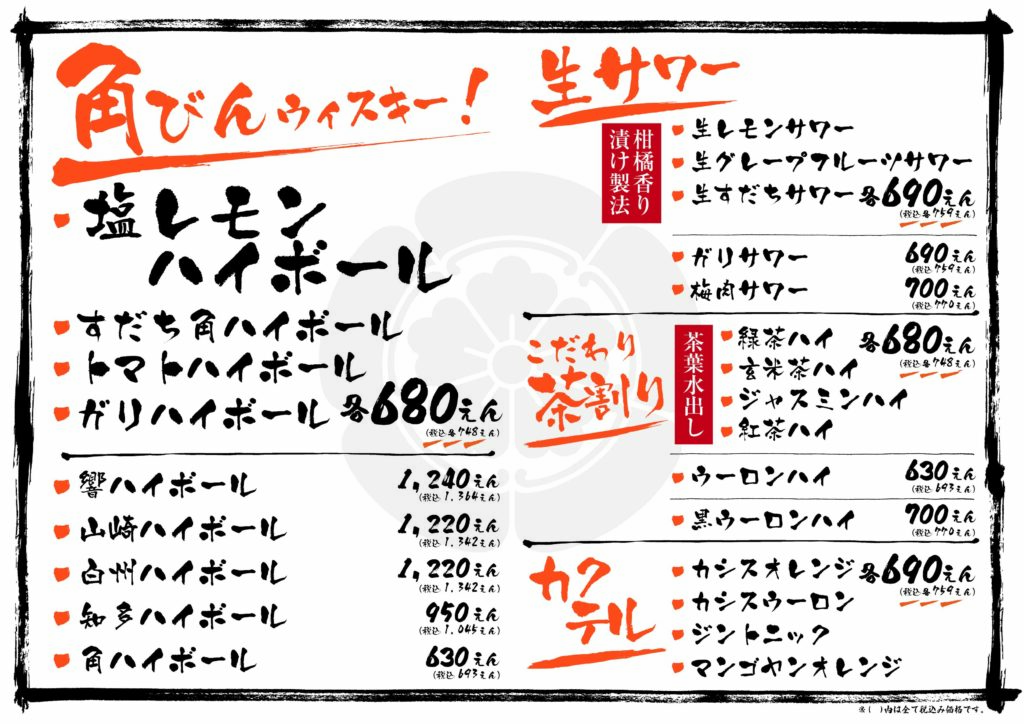 角びんウィスキー!
塩レモン
ハイボール
すだち角ハイボール
トマトハイボール
ガリハイボール 各680えん
(税込各748えん)
響ハイボール 1,240えん
(税込1,364えん)
山崎ハイボール 1,220えん
(税込1,342えん)
白州ハイボール 1,220えん
(税込1,342えん)
知多ハイボール 950えん
(税込1,045えん)
角ハイボール 630えん
(税込693えん)
生サワー
柑橘香り
漬け製法
生レモンサワー
生グレープフルーツサワー
生すだちサワー 各690えん
(税込各759えん)
ガリサワー 690えん
(税込759えん)
梅肉サワー 700えん
(税込770えん)
こだわり
茶割り
茶葉水出し
緑茶ハイ 各680えん
(税込各748えん)
玄米茶ハイ
ジャスミンハイ
紅茶ハイ
ウーロンハイ 630えん
(税込693えん)
黒ウーロンハイ 700えん
(税込770えん)
カク
テル
カシスオレンジ 各690えん
(税込各759えん)
カシスウーロン
ジントニック
マンゴヤンオレンジ
※( )内は全て税込み価格です。